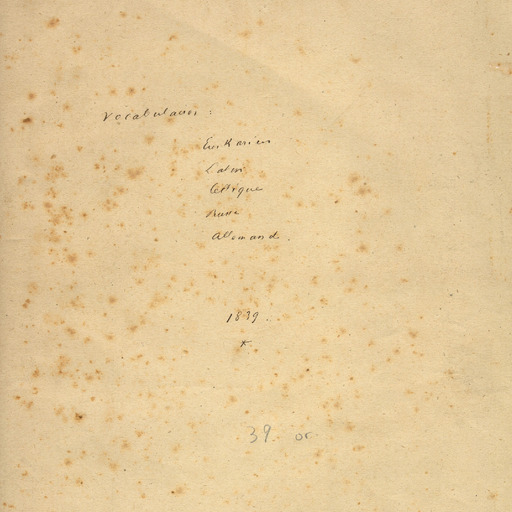 Vocabulaires :
Euskarien
Latin
Celtique
Russe
Allemand.
1839.
x
39. or